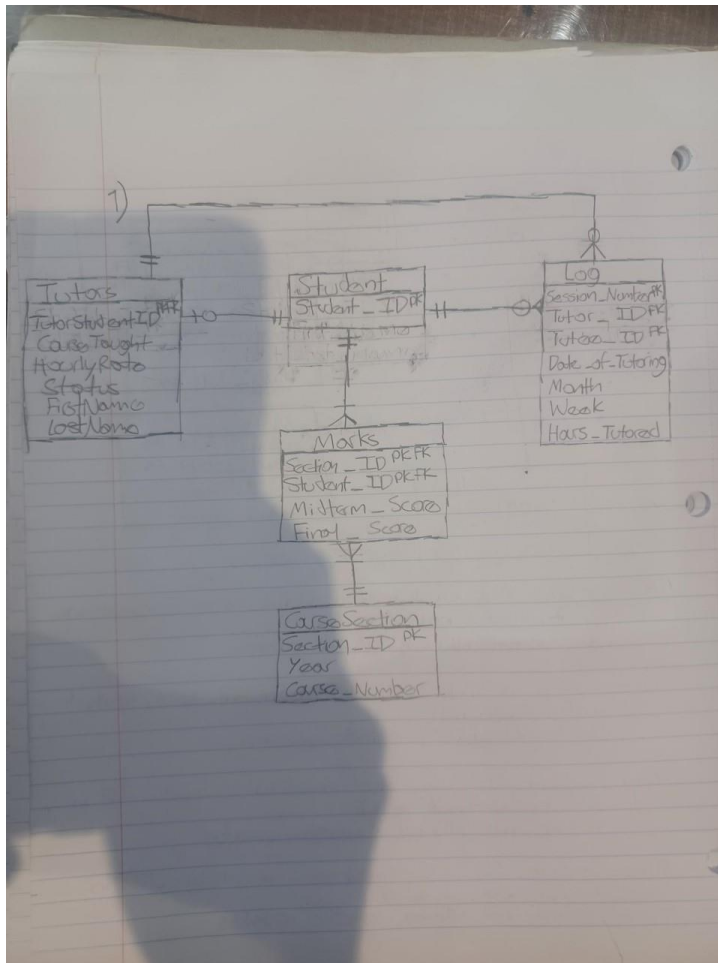 1)
Tutors
TutorStudentID PK FK
CourseTaught
HourlyRate
Status
FirstName
LastName
Student
Student_ID PK
Log
Session_Number PK
Tutor_ID FK
Tutee_ID FK
Date_of_Tutoring
Month
Week
Hours_Tutored
Marks
Section_ID PK FK
Student_ID PK FK
Midterm_Score
Final_Score
CourseSection
Section_ID PK
Year
Course_Number